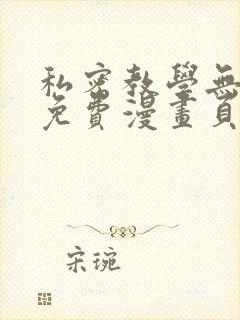 私密教學無
免費漫畫頁
宋琬